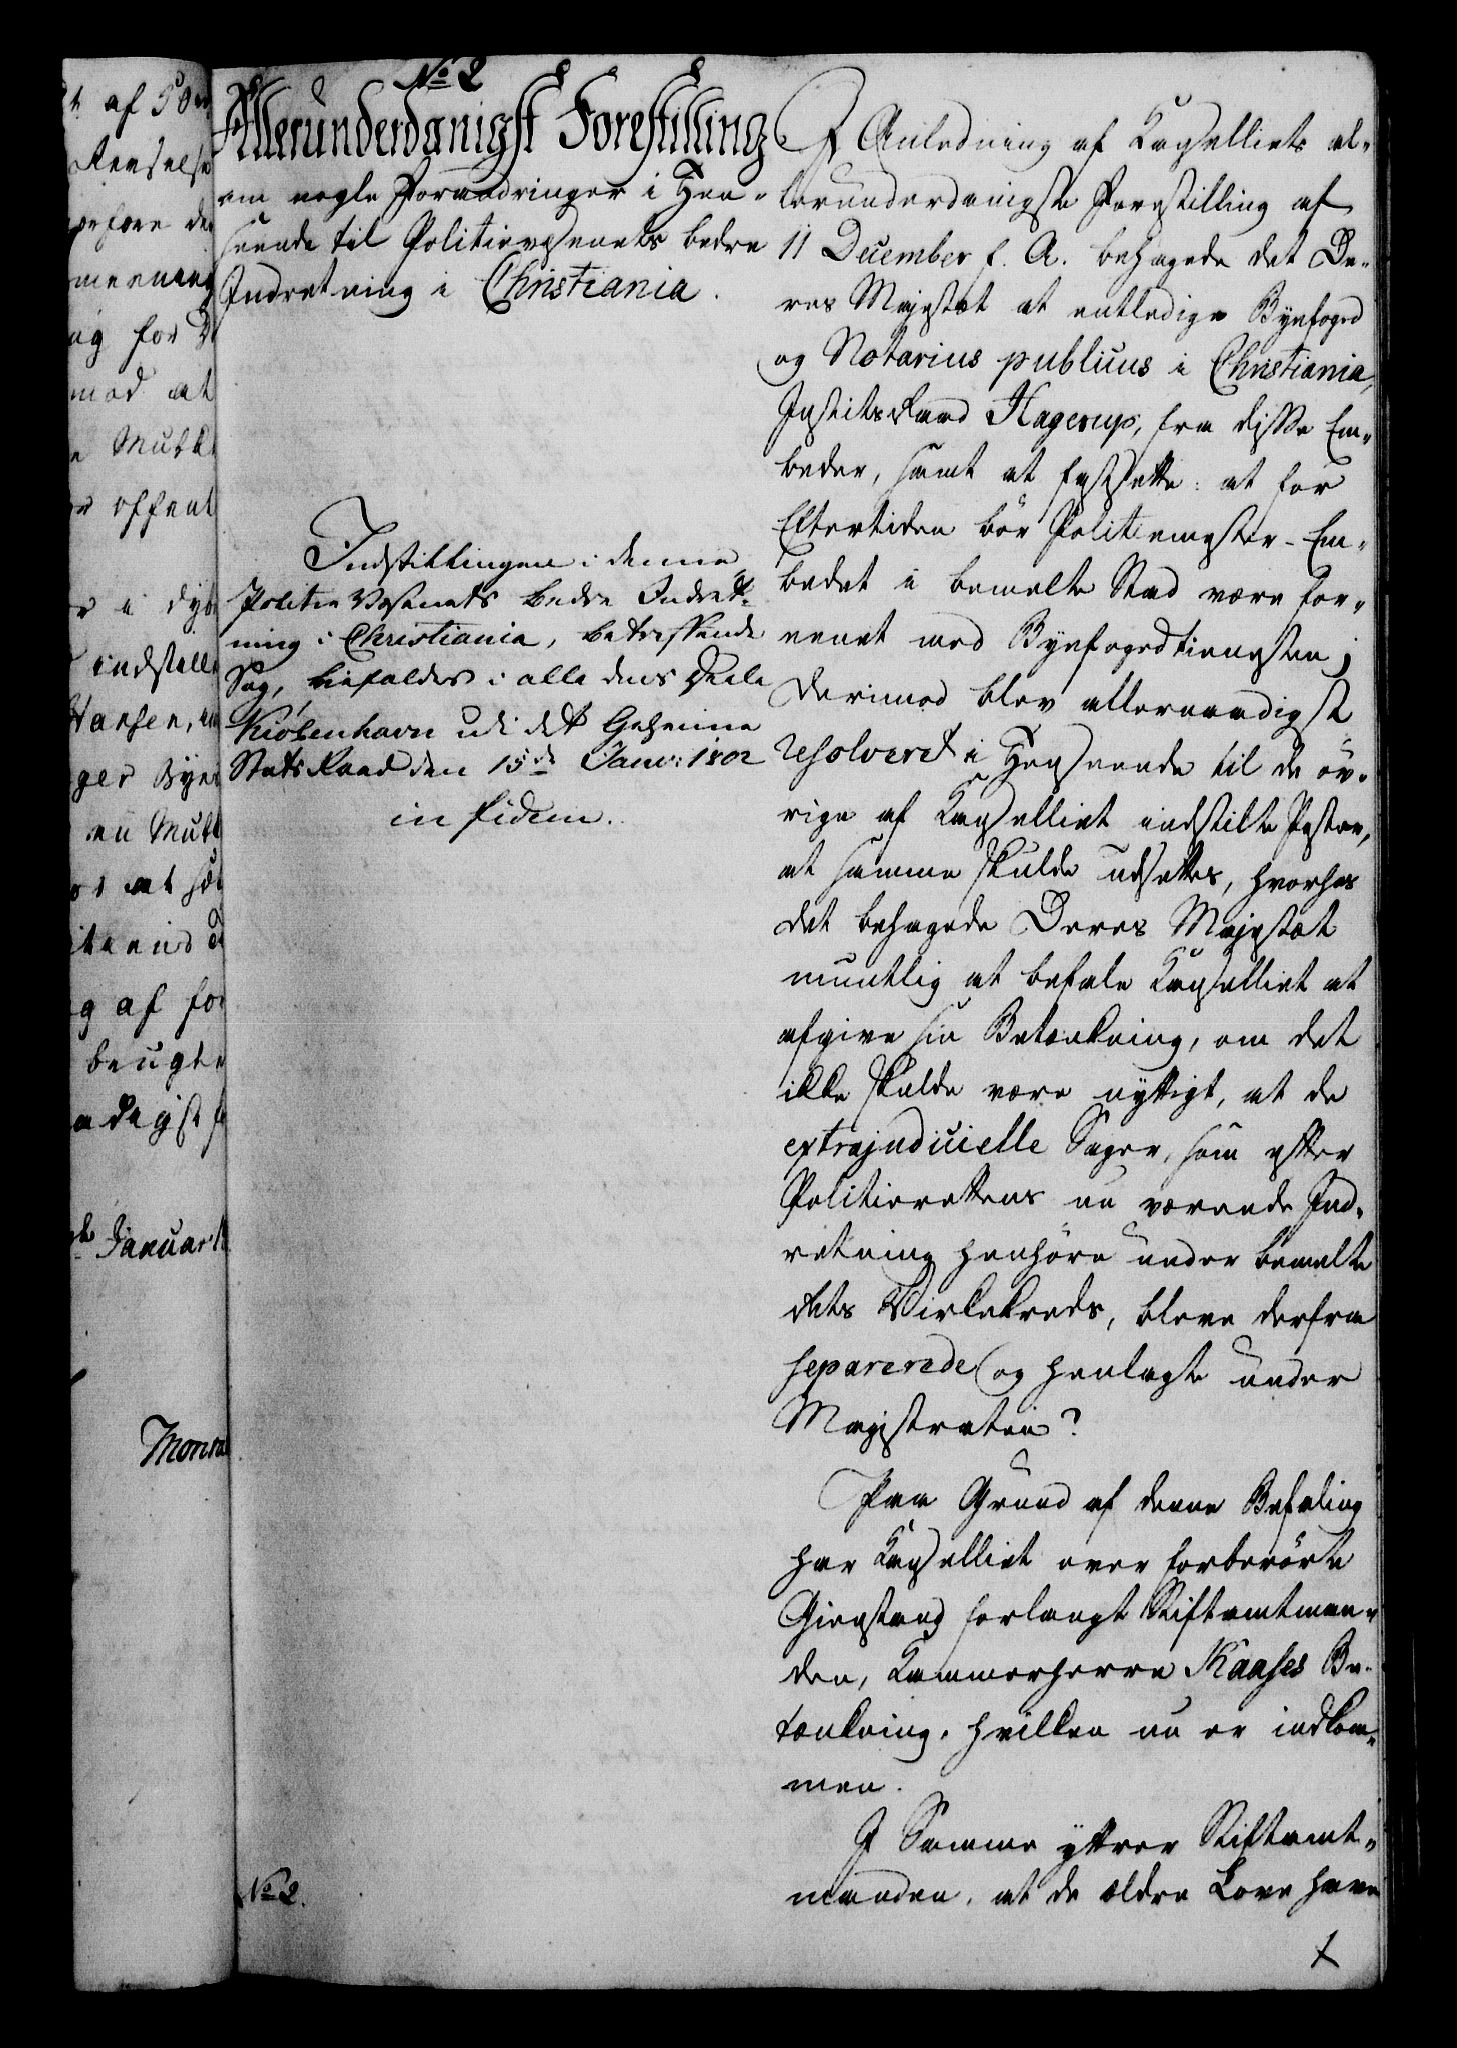 No 2
Allerunderdanigst Forestilling
om nogle Forandringer i Hen-
seende til Politievæsenets bedre
Indretning i Christiania.
Indstillingen i denne
Politie Væsenets bedre Indret-
ning i Christiania, betreffende
Sag, bifaldes i alle dens Deele
Kiøbenhavn udi det Geheime
StatsRaad den 15de Janv: 1802
in fidem.
No 2.
I Anledning af Cancelliets al-
lerunderdanigste Forestilling af
11 December f. A. behagede det De-
res Majestæt at entledige Byefoged
og Notarius publicus i Christiania,
Justitsraad Hagerup, fra disse Em-
beder, samt at fastsætte: at for
Eftertiden bør Politiemester-Em-
bedet i bemelte Stad være for-
eenet med Byefogedtienesten;
derimod blev allernaadigst
resolveret i Henseende til de øv-
rige af Cancelliet indstilte Poster,
at samme skulde udsættes, hvorhos
det behagede Deres Majestæt
mundtlig at befale Cancelliet at
afgive sin Betænkning, om det
ikke skulde være nyttigt, at de
extrajudicielle Sager, som efter
Politierettens nu værende Ind-
retning henhøre under bemelte
Rets Virkekreds, bleve derfra
separerede og henlagte under
Magistraten?
Paa Grund af denne Befaling
har Cancelliet over forberørte
Gienstand forlangt Stiftamtman-
den, Kammerherre Kaases Be-
tænkning, hvilken nu er indkom-
men.
I Samme yttrer Stiftamt-
manden, at de ældre Love have
af 50
Renselse
meening
og for D
mod at
Mulkt
offent
i dyb
indstille
Hansen,
ger Byen
en Mulkt
at
og af for
Januar
Monra